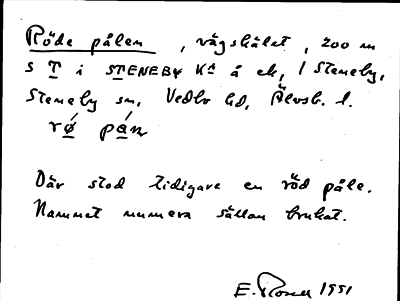 Röde pålen, vägskälet, 200 m
S T i STENEBY KA å ek, / Steneby,
Steneby sn, Vedbo hd, Älvsb. l.
rø̀ pán
Där stod tidigare en röd påle.
Namnet numera sällan brukat.
E. 1991